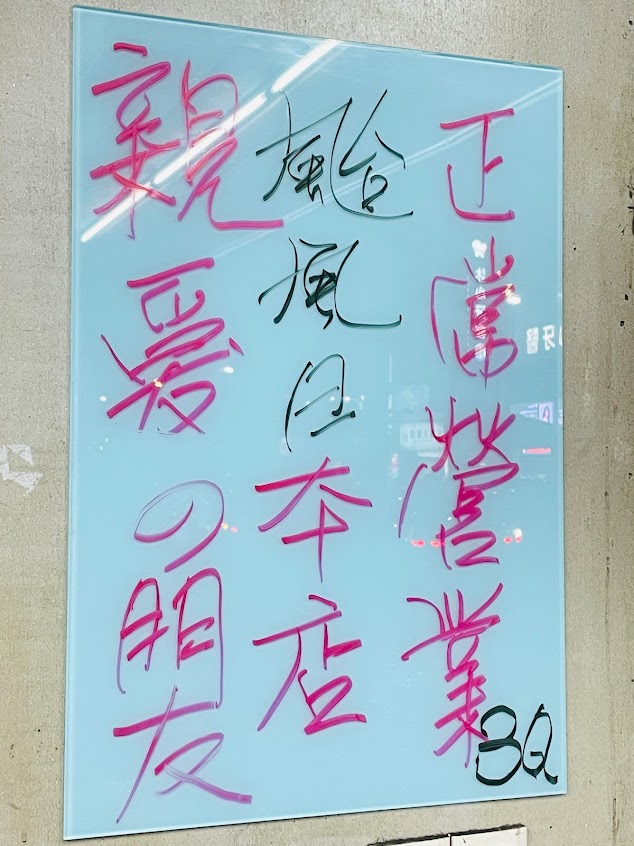 親愛の朋友
颱風日本店
正常營業
3Q